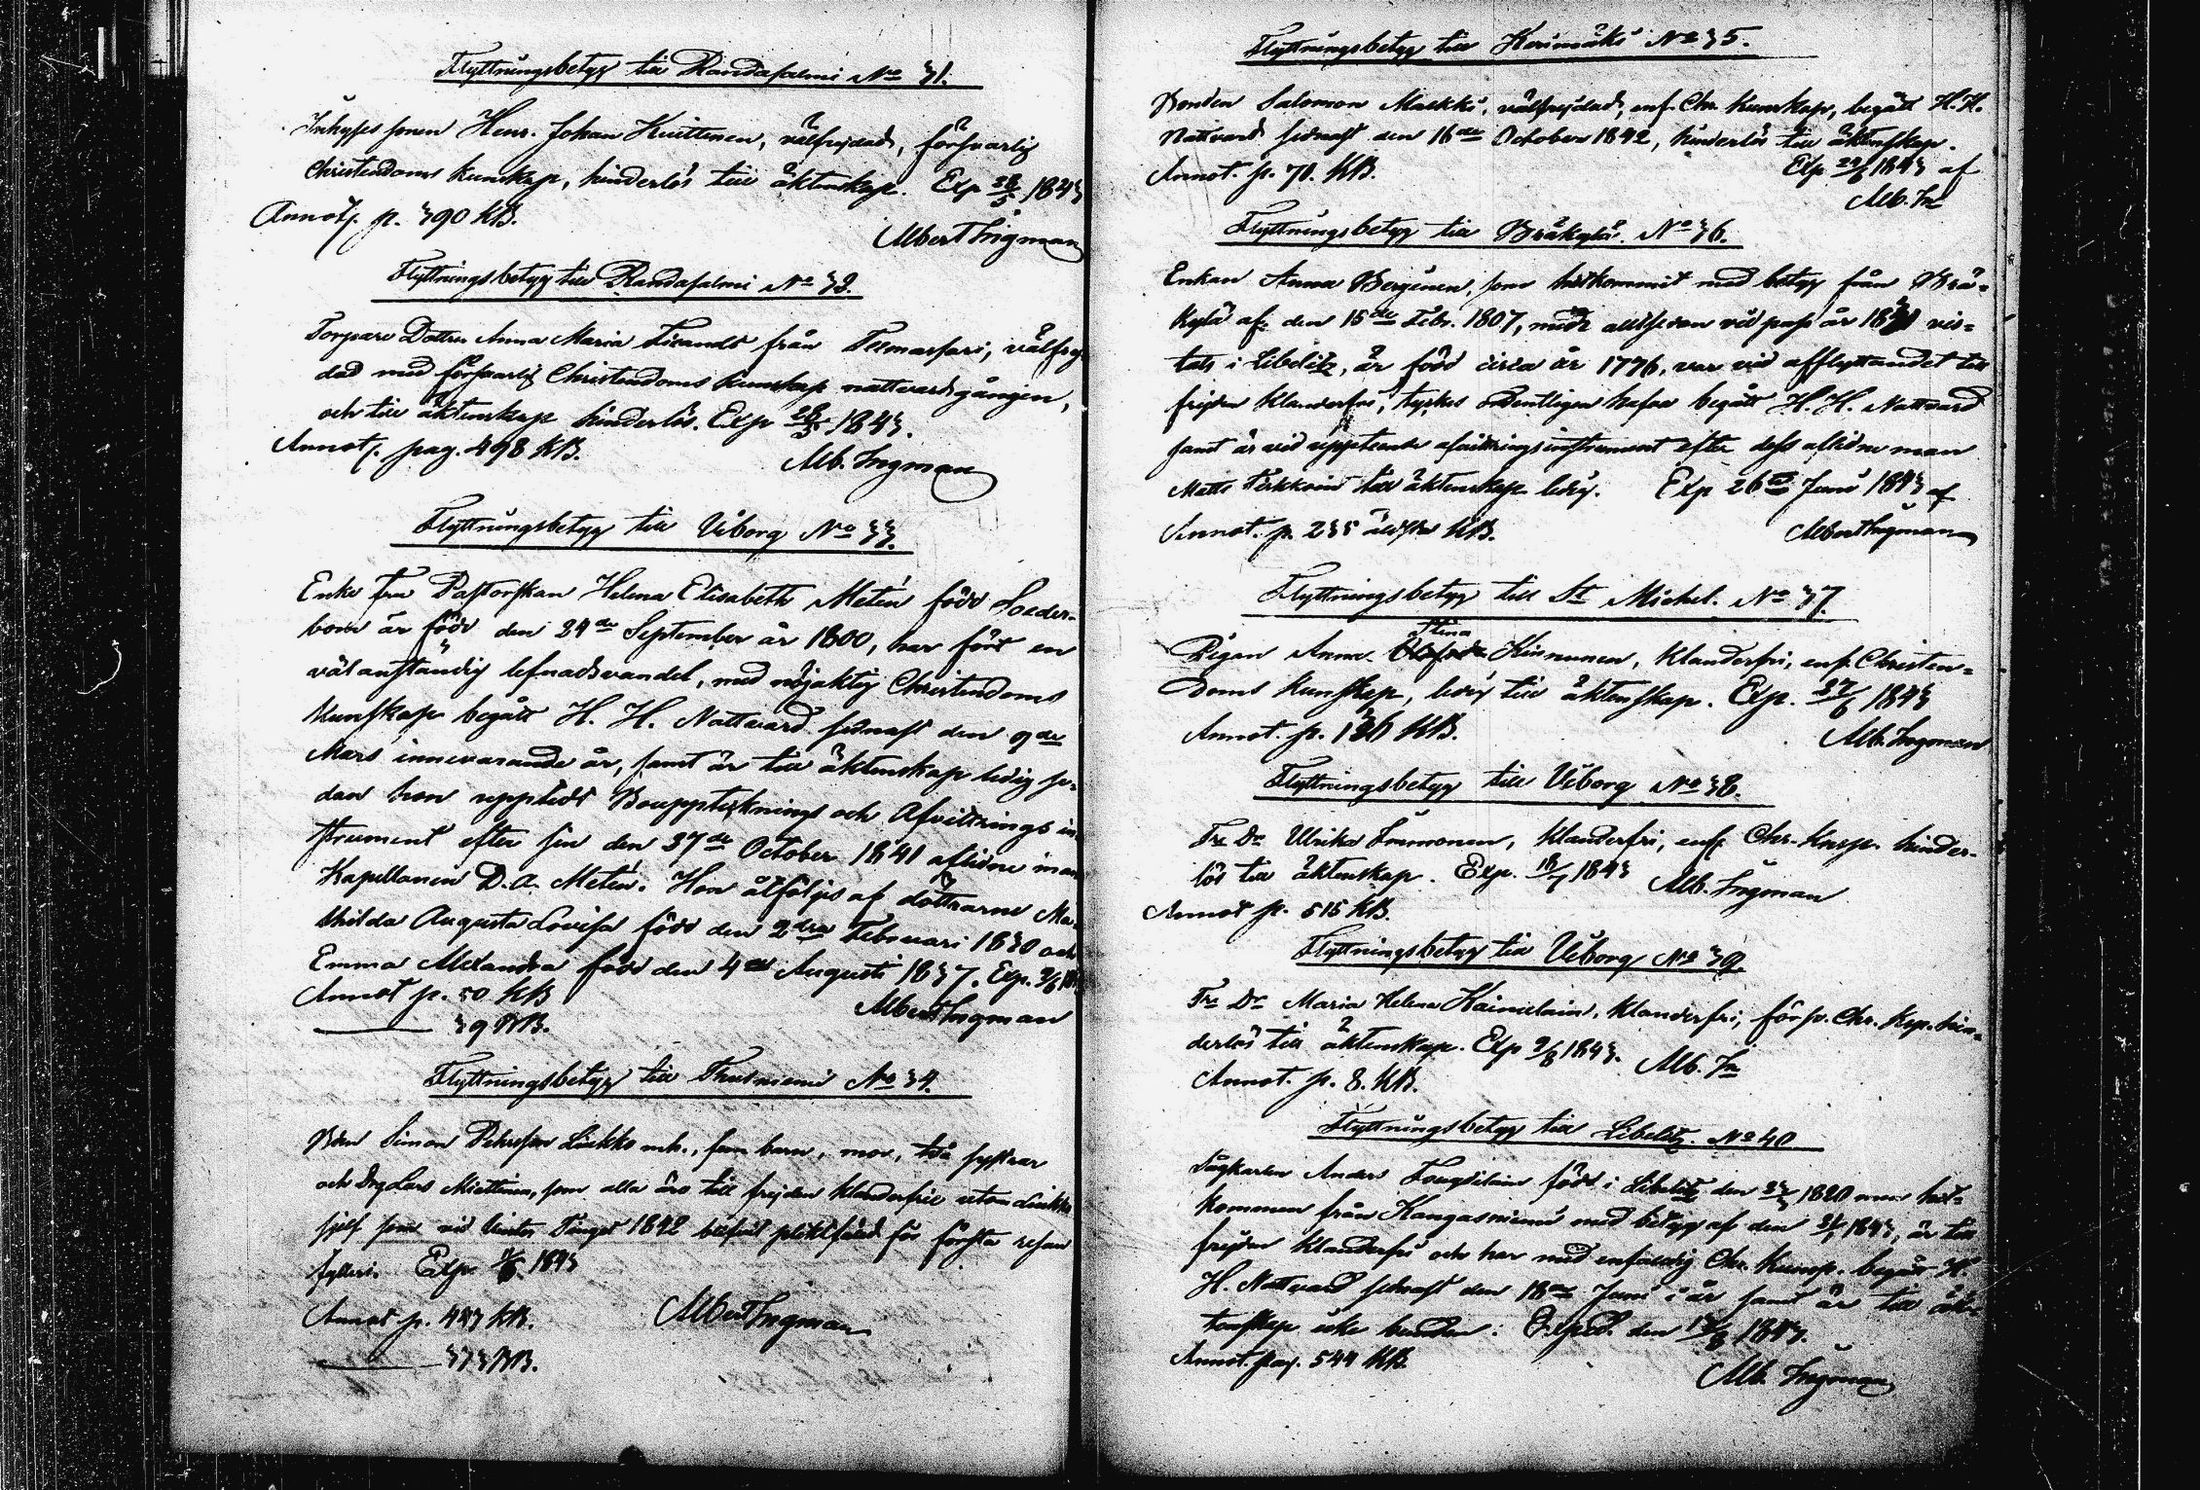 Flyttningsbetyg till Randasalmi No 31.
Inhyses sonen Henr. Johan Kuittinen, välfrejdad, försvarlig
Christendoms kunskap, hinderlös till äktenskap. Exp 1843
Annot. p. 390 KB.
Albert Ingman
Flyttningsbetyg till Randasalmi No 32.
Torpare Dottren Anna Maria från välfrej
dad med försvarlig Christendoms kunskap nattvardsgången,
och till äktenskap hinderlös. Exp 28/5 1843.
Annot. pag. 498 KB.
Alb. Ingman
Flyttningsbetyg till Viborg No 33.
Enke fru Pastorskan Helena Elisabeth Metén född Soeder-
bom är född den 24de September år 1800, har fört en
välanständig lefnadsvandel, med nöjaktig Christendoms
kunskap begått H. H. Nattvard sednast den 9de
Mars innevarande år, samt är till äktenskap ledig se-
dan hon upptedt Bouppteknings och Afvittrings in
strument efter sin den October 1841 aflidne man
Kapellanen D. A. Metén. Hon åtföljes af döttrarne Ma-
thilda Augusta Lovisa född den 2dra Februari 1830 och
Emma Alexandra född den 4de Augusti 1837. Exp.
Annot p. 50 KB
Albert Ingman
39 KB.
Flyttningsbetyg till Thusniemi No 34.
Simon Pehrsson m.h., fem barn, mor, två systrar
och Lars Miettinen, som alla äro till frejden klanderfrie utom
sjelf som vid Vinter Tinget 1842 pliktfäld för första resan
fylleri. Exp. 1843
Annot p. 443 KB.
Albert Ingman
373 KB.
Flyttningsbetyg till Kerimäki No 35.
Bonden Salomon välfrejdad, enf. Chr. kunskap, begått H. H.
Nattvard sednast den 16de October 1842, hinderlös till äktenskap.
Annot. p. 71. KB.
Exp 1843 af
Alb. In
Flyttningsbetyg till Bräkylä. No 36.
Enkan Anna Berginen, som hitkommit med betyg från Brä-
kylä af den 15de Febr. 1807, men alltsedan vid pass år vis-
tats i Libelitz, är född circa år 1776, var vid afflyttandet till
frejden klanderfri, tyckes ordentligen hafva begått H. H. Nattvard
samt är vid uppteende afvittringsinstrument efter dess aflidne man
Matts till äktenskap ledig. Exp 26 Juni 1843 af
Annot. p. 235 äldsta KB.
Albert Ingman
Flyttningsbetyg till St Michel. No 37.
Stina
Pigan Anna Kinnunen, klanderfri, enf. Christen-
doms kunskap, ledig till äktenskap. Exp. 1843
Annot. p. KB.
Alb. Ingman
Flyttningsbetyg till Viborg No 38.
Tre Dr Ulrika Immonen, klanderfri, enf. Chr. Knsp. hinder-
lös till äktenskap. Exp. 1843 Alb. Ingman
Annot p. 515 KB.
Flyttningsbetyg till Viborg No 39.
Tre Dr Maria Helena Hainelain, klanderfri, försv. Chr. Ksp. hin-
derlös till äktenskap. Exp 9/8 1843. Alb. In
Annot. p. 8. KB.
Flyttningsbetyg till Libelitz No 40
Anders född i Libelitz den 1820 men hit-
kommen från Kangasniemi med betyg af den 1843, är till
frejden klanderfri och har med enfaldig Chr. Kunsp. begått H.
H. Nattvard sednast den 18de Juni i år samt är till äk-
tenskap icke bunden. Exped. den 1843.
Annot. pag. 544 KB
Alb. Ingman